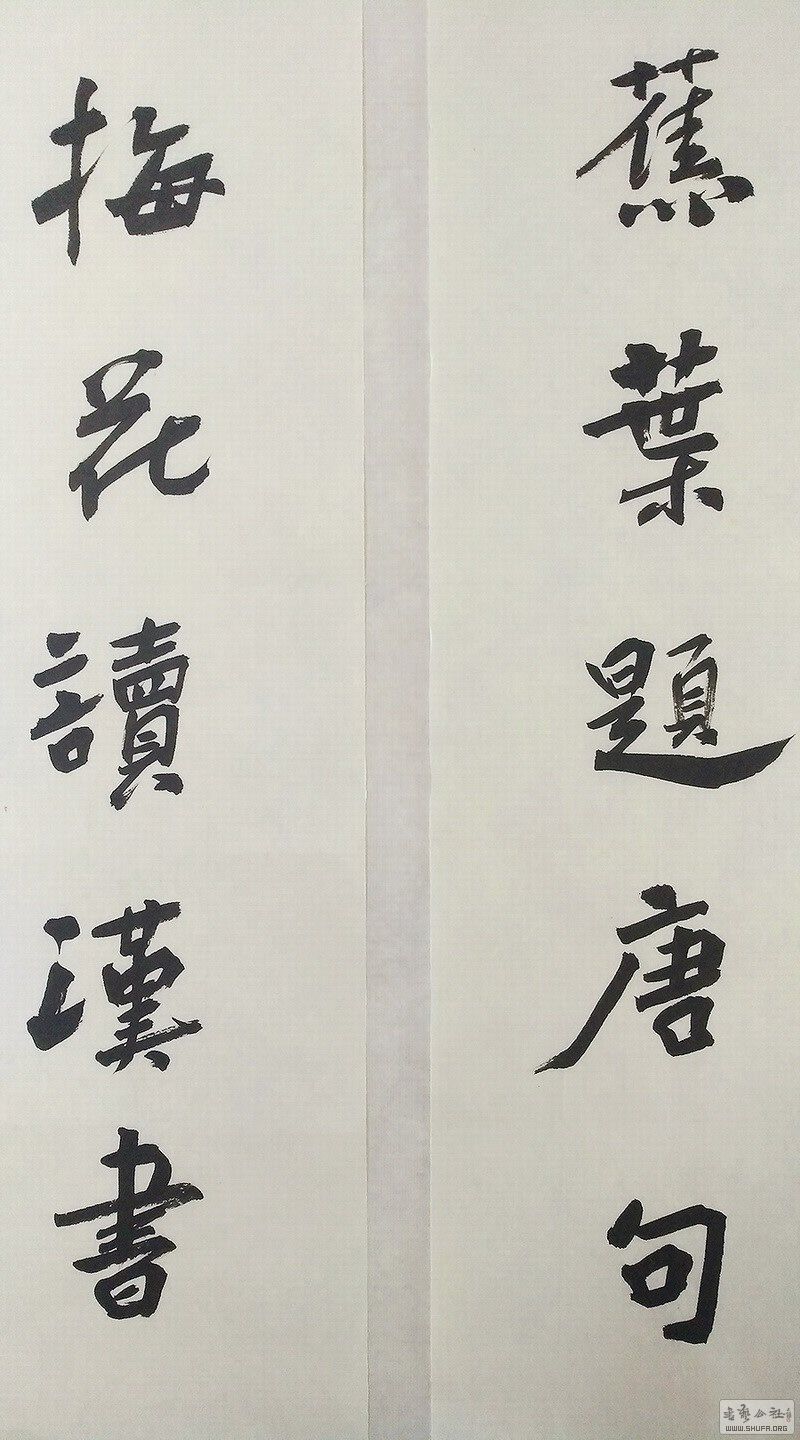 蕉葉題唐句
梅花讀漢書
WWW.SHUFA.ORG